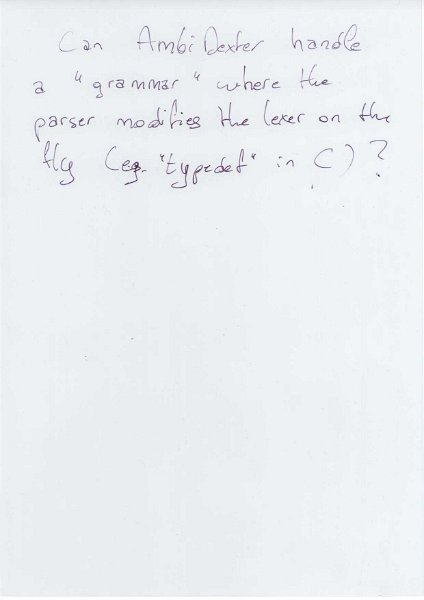 Can AmbiDexter handle
a "grammar" where the
parser modifies the lexer on the
fly (eg. "typedef" in C)?